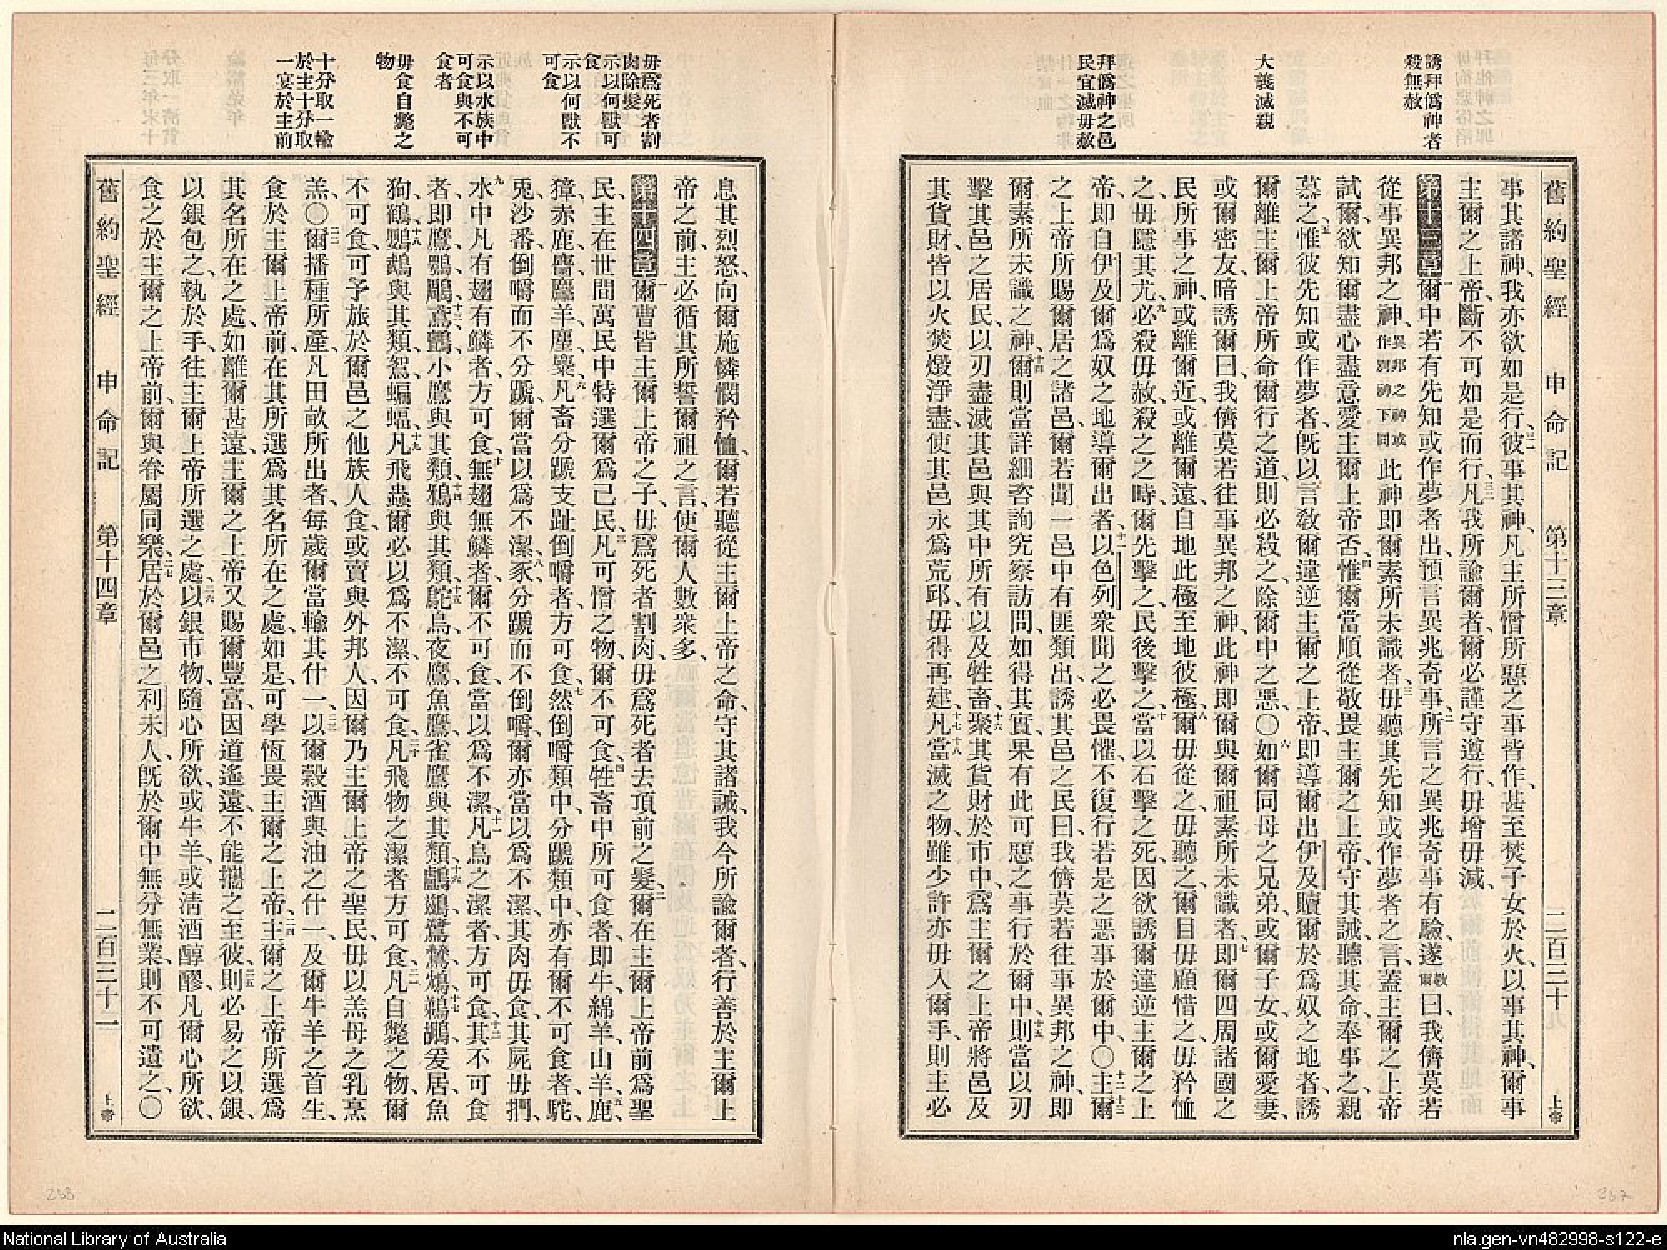 誘拜僞神者
殺無赦
大義滅親
拜僞神之邑
民宜滅毋赦
舊約聖經 申命記 第十三章 二百三十九 上帝
事其諸神、我亦欲如是行、三一彼事其神、凡主所憎所惡之事皆作、甚至焚子女於火、以事其神、爾事
主爾之上帝、斷不可如是而行、三二凡我所諭爾者、爾必謹守遵行、毋增毋減、
第十三章 一爾中若有先知或作夢者出、預言異兆奇事、二所言之異兆奇事有驗、遂教爾曰、我儕莫若
從事異邦之神、異邦之神或作別神下同此神即爾素所未識者、三毋聽其先知或作夢者之言、蓋主爾之上帝
試爾、欲知爾盡心盡意愛主爾上帝否、四惟爾當順從敬畏主爾之上帝、守其誡、聽其命、奉事之、親
慕之、五惟彼先知或作夢者、旣以言敎爾違逆主爾之上帝、即導爾出伊及贖爾於爲奴之地者、誘
爾離主爾上帝所命爾行之道、則必殺之、除爾中之惡、〇六如爾同母之兄弟、或爾子女、或爾愛妻、
或爾密友、暗誘爾曰、我儕莫若往事異邦之神、此神即爾與爾祖素所未識者、七即爾四周諸國之
民所事之神、或離爾近、或離爾遠、自地此極至地彼極、八爾毋從之、毋聽之、爾目毋顧惜之、毋矜恤
之、毋隱其尤、九必殺毋赦、殺之之時、爾先擊之、民後擊之、十當以石擊之死、因欲誘爾違逆主爾之上
帝、即自伊及爾爲奴之地導爾出者、十一以色列衆聞之必畏懼、不復行若是之惡事於爾中、〇十二主爾
之上帝所賜爾居之諸邑、爾若聞一邑中十三有匪類出、誘其邑之民曰、我儕莫若往事異邦之神、即
爾素所未識之神、十四爾則當詳細咨詢究察訪問、如得其實、果有此可惡之事行於爾中、十五則當以刃
擊其邑之居民、以刃盡滅其邑與其中所有以及牲畜、十六聚其貨財於市中、爲主爾之上帝將邑及
其貨財、皆以火焚燬淨盡、使其邑永爲荒邱、毋得再建、十七凡當滅之物、雖少許亦毋入爾手、則主必
毋爲死者割
肉除髮
示以何獸可
食
示以何獸不
可食
示以水族中
可食與不可
食者
毋食自斃之
物
十分取一輸
於主十分取
一宴於主前
息其烈怒、向爾施憐憫矜恤、十八爾若聽從主爾上帝之命、守其諸誡、我今所諭爾者、行善於主爾上
帝之前、主必循其所誓爾祖之言、使爾人數衆多、
第十四章 一爾曹皆主爾上帝之子、毋爲死者割肉、毋爲死者去頂前之髮、二爾在主爾上帝前爲聖
民、主在世間萬民中特選爾爲己民、三凡可憎之物、爾不可食、四牲畜中所可食者、即牛、綿羊、山羊、五鹿、
獐、赤鹿、麕、麢羊、麈、麋、六凡畜分蹏支趾倒嚼者方可食、七然倒嚼類中、分蹏類中、亦有爾不可食者、駝、
兎、沙番、倒嚼而不分蹏、爾當以爲不潔、八豕分蹏而不倒嚼、爾亦當以爲不潔、其肉毋食、其屍毋捫、
九水中凡有翅有鱗者、方可食、十無翅無鱗者、爾不可食、當以爲不潔、十一凡鳥之潔者、方可食、十二其不可食
者即鷹、鶚、鵰、十三鳶、鸇、小鷹、與其類、十四鴉與其類、十五鴕鳥、夜鷹、魚鷹、雀鷹、與其類、十六鸕鷀、鷺鷥、鵁、十七鵜鶘、爰居、魚
狗、十八鶴、鸚鵡、與其類、鴽、蝙蝠、十九凡飛蟲爾必以爲不潔、不可食、二十凡飛物之潔者、方可食、二一凡自斃之物、爾
不可食、可予旅於爾邑之他族人食、或賣與外邦人、因爾乃主爾上帝之聖民、毋以羔母之乳烹
羔、〇二二爾播種所產、凡田畝所出者、每歲爾當輸其什一、二三以爾穀酒與油之什一、及爾牛羊之首生、
食於主爾上帝前、在其所選爲其名所在之處、如是、可學恆畏主爾之上帝、二四主爾之上帝所選爲
其名所在之處、如離爾甚遠、主爾之上帝又賜爾豐富、因道遙遠、不能攜之至彼、二五則必易之以銀、
以銀包之、執於手、往主爾上帝所選之處、二六以銀市物、隨心所欲、或牛羊、或淸酒醇醪、凡爾心所欲、
食之於主爾之上帝前、爾與眷屬同樂、二七居於爾邑之利未人、旣於爾中無分無業、則不可遺之、〇
舊約聖經 申命記 第十四章 二百三十一 上帝
258
257
National Library of Australia
nla.gen-vn482998-s122-e